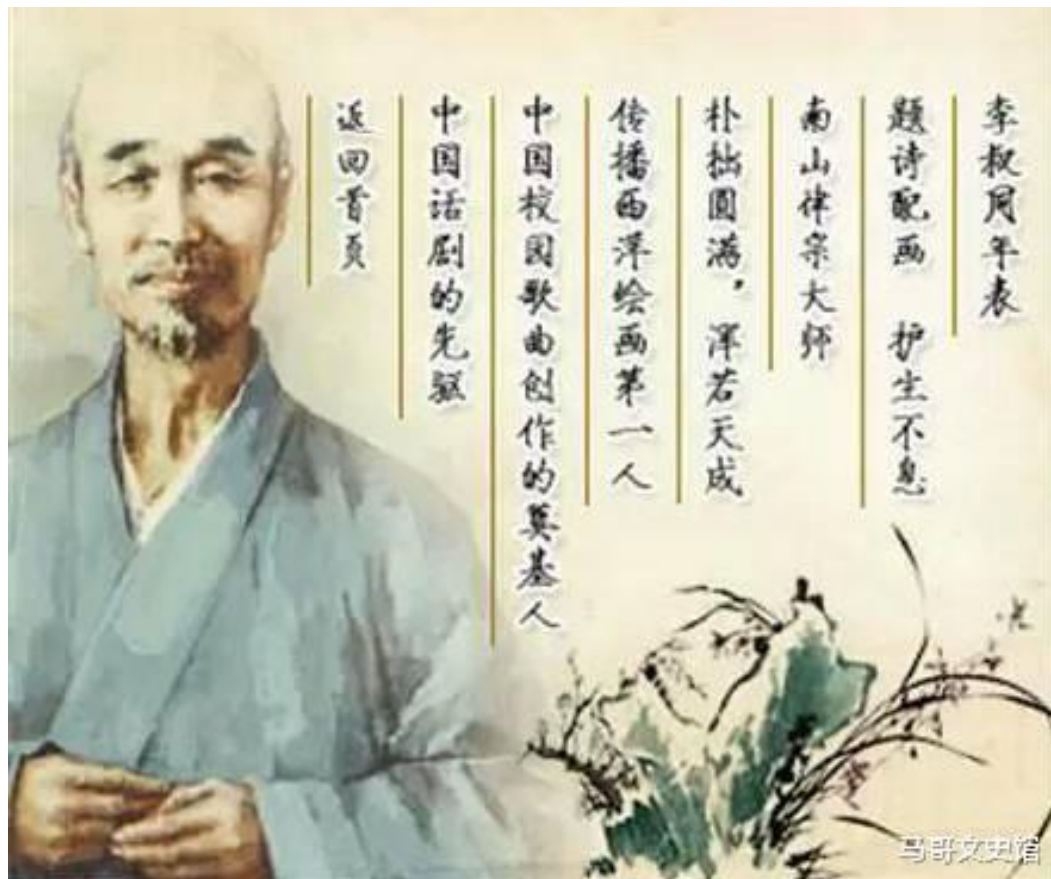 李叔同年表
题诗配画 护生不息
南山律宗大师
朴拙圆满，浑若天成
传播西洋绘画第一人
中国校园歌曲创作的奠基人
中国话剧的先驱
返回首页
马哥文史馆